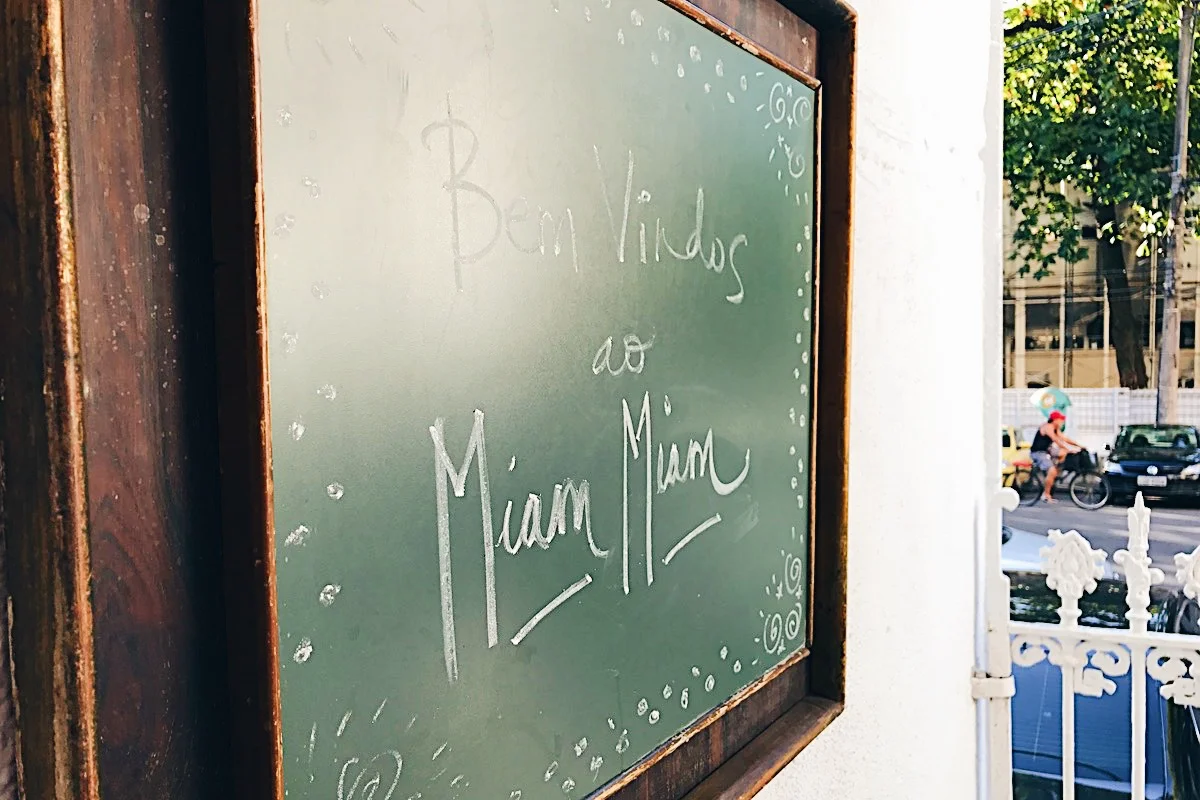 Bem Vindos
ao
Miam Miam